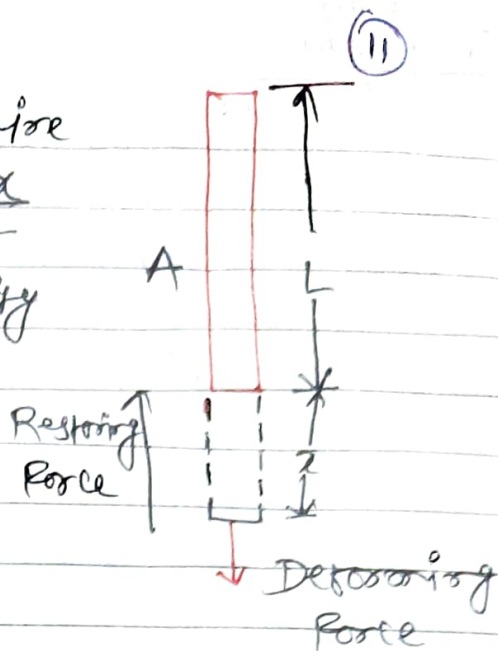 11
ire
x
A
L
Restoring
Force
x
Deforming
Force